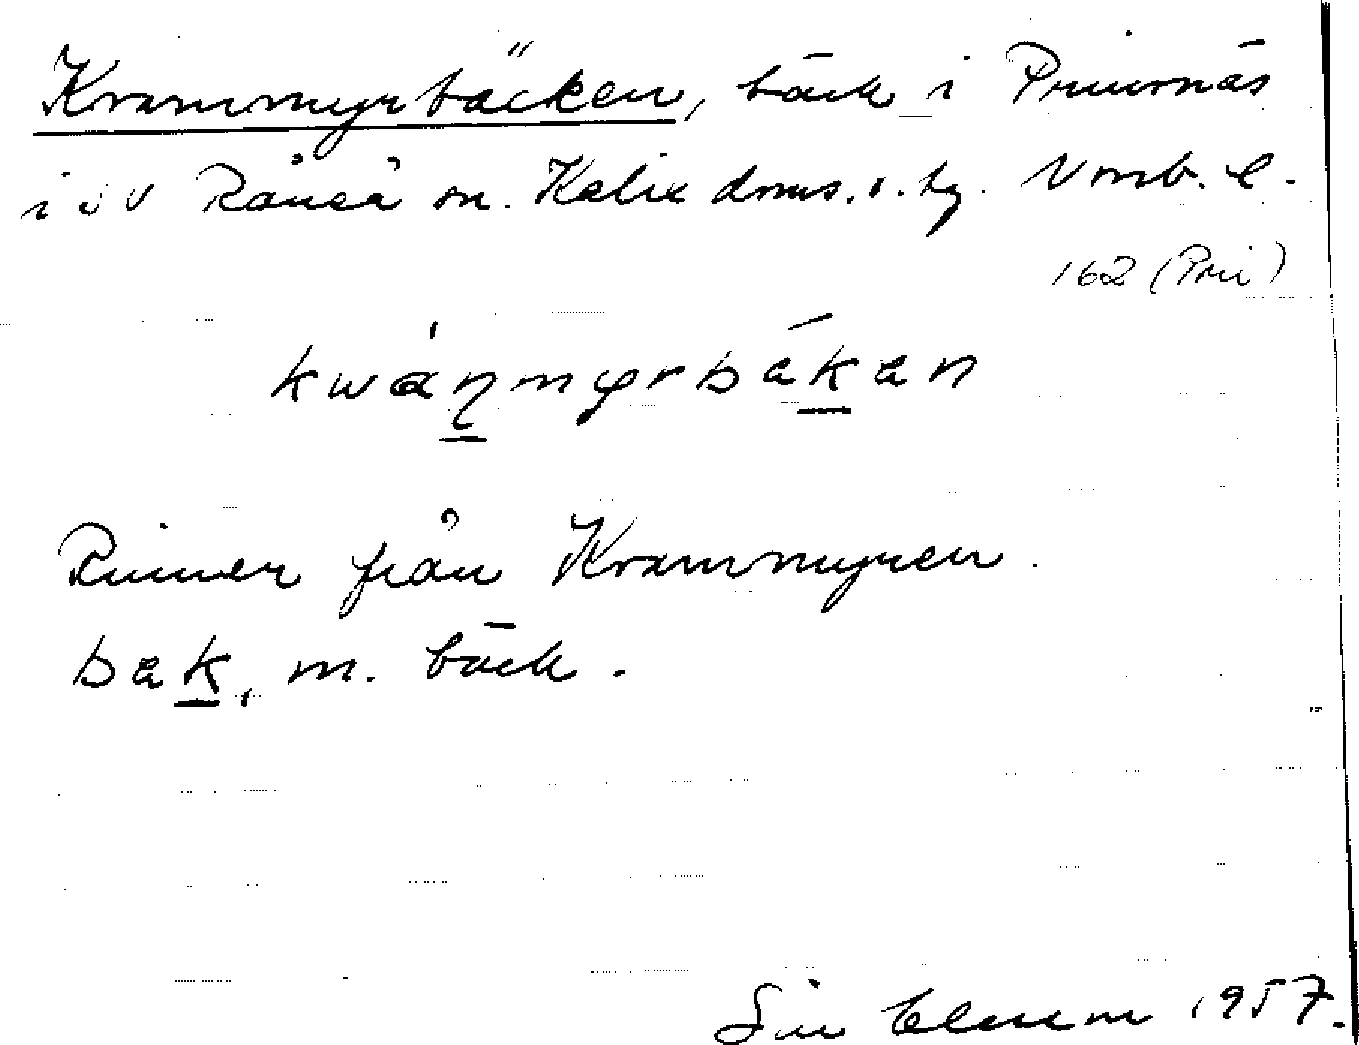 Kvarnmyrbäcken, bäck i Prinsnäs
i Råneå sn. Kalix doms. o. tg. Norrb. l.
162 (Pri)
kwáŋmyrbákan
Rinner från Kvarnmyren.
bak, m. bäck.
1957.